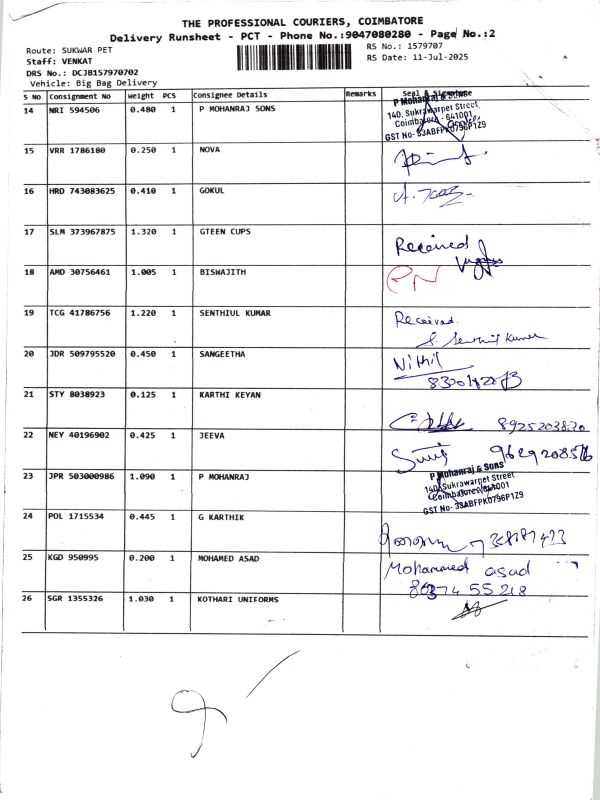 THE PROFESSIONAL COURIERS, COIMBATORE
Delivery Runsheet - PCT - Phone No.:9047080280 - Page No.:2
Route: SUKWAR PET
RS No.: 1579707
Staff: VENKAT
RS Date: 11-Jul-2025
DRS No.: DCJB157970702
Vehicle: Big Bag Delivery
S No Consignment No Weight PCS Consignee Details Remarks Seal & Signature
14 NRI 594506 0.480 1 P MOHANRAJ SONS
P Mohanraj & Sons
140, Sukrawarpet Street,
Coimbatore - 641001
GST No- 33ABFPK0796P1Z9
15 VRR 1786180 0.250 1 NOVA
16 HRD 743083625 0.410 1 GOKUL
17 SLM 373967875 1.320 1 GTEEN CUPS
Received
18 AMD 30756461 1.005 1 BISWAJITH
19 TCG 41786756 1.220 1 SENTHIUL KUMAR
Received.
S. Senthil Kumar
20 JDR 509795520 0.450 1 SANGEETHA
Nithil
21 STY 8038923 0.125 1 KARTHI KEYAN
8925203820
22 NEY 40196902 0.425 1 JEEVA
23 JPR 503000986 1.090 1 P MOHANRAJ
P Mohanraj & Sons
140, Sukrawarpet Street
Coimbatore - 641001
GST No- 33ABFPK0796P1Z9
24 POL 1715534 0.445 1 G KARTHIK
25 KGD 950995 0.200 1 MOHAMED ASAD
Mohammed asad
26 SGR 1355326 1.030 1 KOTHARI UNIFORMS